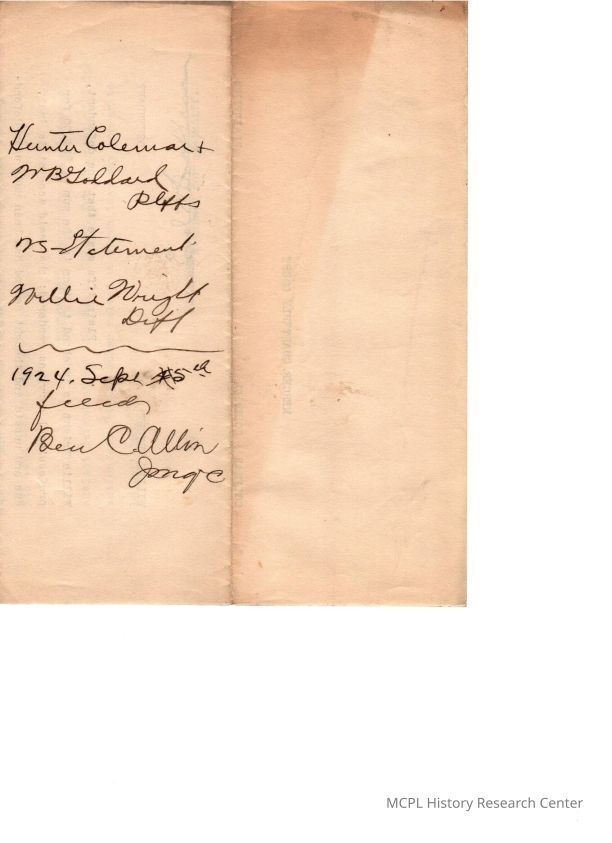 Hunter Coleman +
WB Goddard
Plffs
vs-Statement
Willie Wright
Deft
1924. Sept 5th
filed
Ben C. Allin
MCPL History Research Center